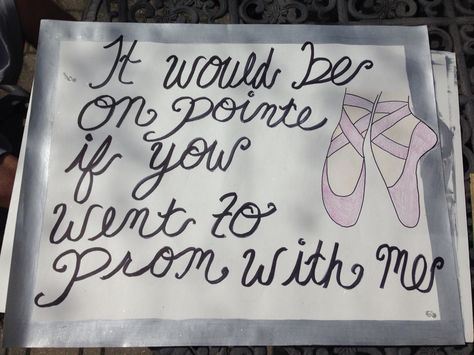 It would be
on pointe
if you
went to
prom with me